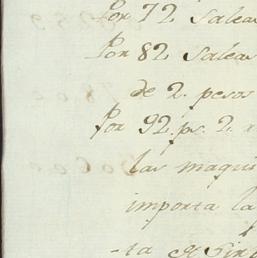 Por 72 Salea
Por 82 Saleas
de 2. pesos
Por 92. ps. 2. r
las maqui
importa la